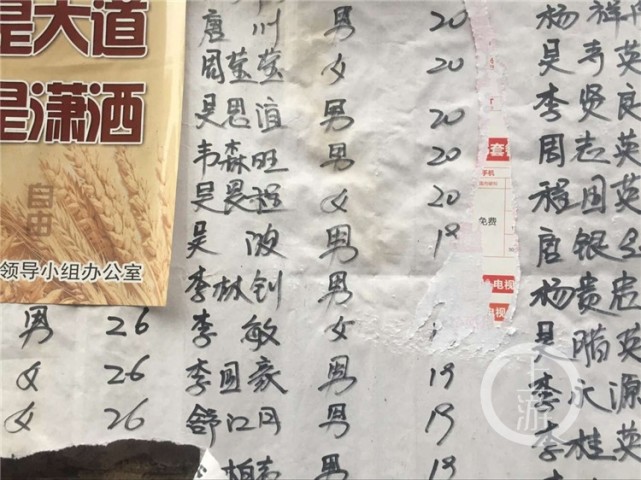 是大道
是潇洒
自由
领导小组办公室
男 26
女 26
女 26
唐 川 男 20
周莹莹 女 20
吴思谊 男 20
韦森旺 男 20
吴晨程 女 20
吴波 男 19
李林钊 男
李敏 女
李国豪 男 19
舒江 男 19
柏 男 19
杨祥
吴寿英
李贤良
周志英
程国英
唐银全
杨贵忠
吴腊英
李永源
李桂英
套餐
手机
免费
电视
电视
上游